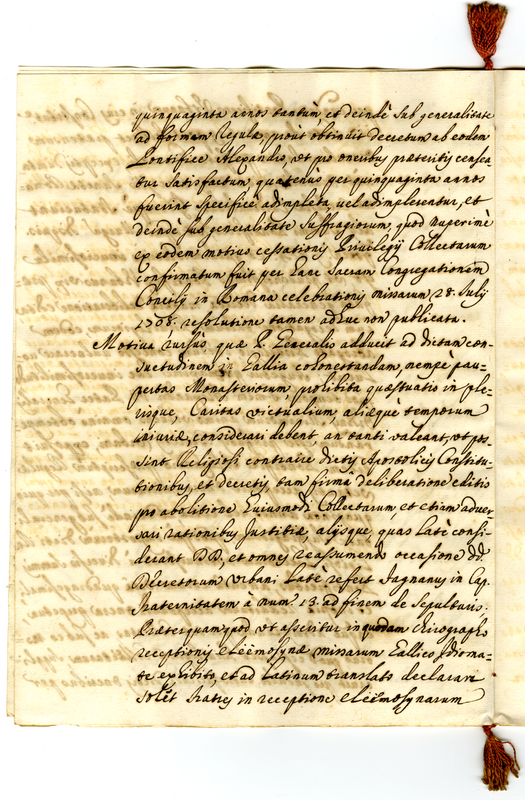 quinquaginta annos tantùm, et deindè sub generalitate
ad formam Regulæ, prout obtinuit decretum ab eodem
Pontifice Alexandro, vt pro oneribus præteritis censea
tur satisfactum, quatenus per quinquaginta annos
fuerint specificè adimpleta, uel adimplerentur, et
deindè sub generalitate suffragiorum, quod nuperimè
ex eodem motiuo cessationis Priuilegij Collectarum
confirmatum fuit per hanc Sacram Congregationem
Concilij in Romana celebrationis missarum 28. Julij
1708. resolutione tamen adhuc non publicata.
Motiua rursùs quæ P. Generalis adducit ad dictam con-
suetudinem in Gallia cohonestandam, nempè pau-
pertas Monasteriorum, prohibita quæstuatio in ple-
risque, Caritas victualium, aliæquè temporum
iniuriæ, considerari debent, an tanti valeant, vt pos-
sint Religiosi contraire dictis Apostolicis Constitu-
tionibus, et decretis tam firmâ deliberatione editis
pro abolitione huiusmodi Collectarum, et etiam aduer-
sari rationibus Justitiæ, alijsque, quas latè consi-
derant DD., et omnes reassumendo occasione dd.
Decretorum Urbani latè refert Fagnanus in Cap.
Fraternitatem à num. 13. ad finem de Sepulturis.
Præterquamquod vt asseritur in quodam Chirographo
receptionis eleëmosynæ missarum Gallico Idioma-
te exhibito, et ad latinum translato declarari
solet Fratres in receptione eleëmosynarum